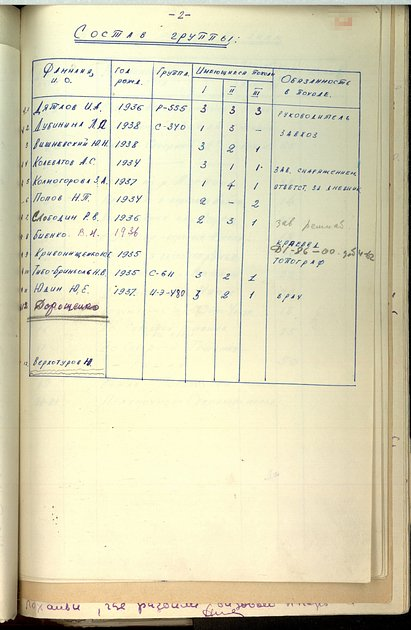 -2-
Состав группы:
Фамилия, и. о. Год рожд. Группа Имеющиеся походы I II III Обязанность в походе.
Дятлов И.А. 1936 Р-555 3 3 3 Руководитель
Дубинина Л.А. 1938 С-340 1 3 – Завхоз
Вишневский Ю.И. 1938 3 2 1
Колеватов А.С. 1934 3 1 1 Зав. снаряжением
Колмогорова З.А. 1937 1 4 1 ответст. за дневник
Попов Н.П. 1934 2 – 2
Слободин Р.В. 1936 2 3 1 Зав ремнаб
Биенко В. 1936
Кривонищенко 1935 топограф
Тибо-Бриньоль Н.В. 1935 С-6 3 2 1
Юдин Ю.Е. 1937 И-Э-480 3 2 1 врач
Дорошенко
Верхотуров